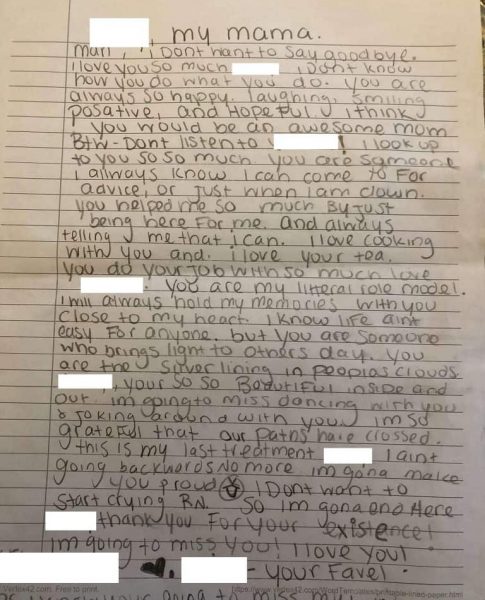 my mama.
man, I Dont want to say goodbye.
I love you so much I Dont know
how you do what you do. you are
always so happy. laughing, smiling
posative, and Hopeful. I think
you would be an awesome mom
Btw- Dont listen to ! I look up
to you so so much. you are someone
I always know I can come to For
advice, or Just when I am clown.
you helped me so much By Just
being here For me. and always
telling me that I can. I love cooking
with you and. I love your tea.
you do your job with so much love
. you are my litteral role model.
I will always hold my memories with you
close to my heart. I know life aint
easy For anyone. but you are someone
who brings light to others day. you
are the silver lining in peoples clouds
, your so so Beautiful inside and
out. im going to miss dancing with you
& joking around with you. im so
grateful that our paths have crossed.
this is my last treatment I aint
going backwords no more. im gona make
you proud I Dont want to
start crying RN. So im gona end Here
, thank you For your existence!
im going to miss you! I love you!
- your Fave!
Vertex42.com. Free to print.
https://www.vertex42.com/WordTemplates/printable-lined-paper.html
going to miss my